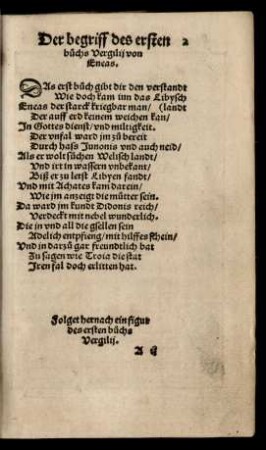 Der begriff des ersten 2
büchs Vergilij von
Eneas.
DAs erst büch gibt dir den verstandt
Wie doch kam inn das Libysch
Eneas der starck kriegbar man/ (landt
Der auff erd keinem weichen kan/
In Gottes dienst/ vnd miltigkeit.
Der vnfal ward jm zů bereit
Durch haſs Junonis vnd auch neid/
Als er wolt sůchen Welisch landt/
Vnd irt in wassern vnbekant/
Biß er zu letst Libyen fandt/
Vnd mit Achates kam darein/
Wie jm anzeigt die můtter sein.
Da ward jm kundt Didonis reich/
Verdeckt mit nebel wunderlich.
Die in vnd all die gsellen sein
Adelich entpfieng/ mit hülffes schein/
Vnd in darzů gar freundtlich bat
Zu sagen wie Troia die stat
Iren fal doch erlitten hat.
Folget hernach ein figur
des ersten bůchs
Vergilij.
A ij